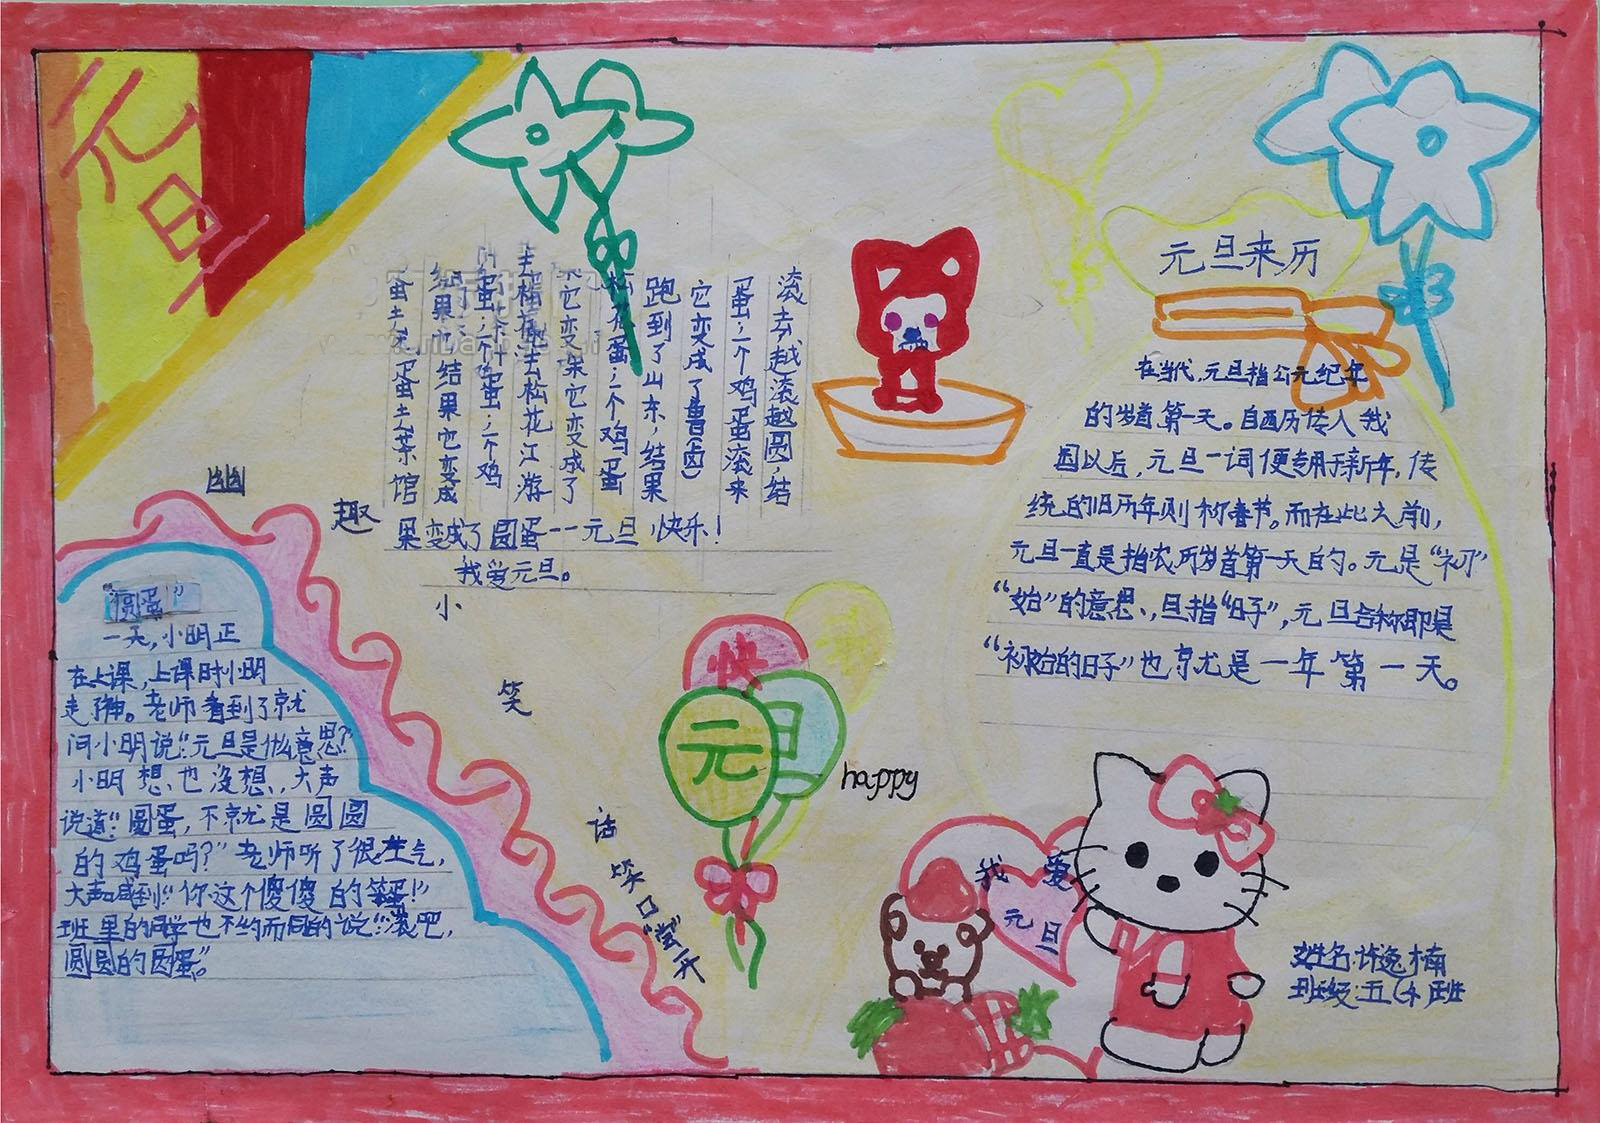 元旦
元旦来历
在当代,元旦指公元纪年
的岁首第一天。自西历传入我
国以后,元旦一词便专用于新年,传
统的旧历年则称春节。而在此之前,
元旦一直是指农历岁首第一天的。元是“初”
“始”的意思,旦指“日子”,元旦合称即是
“初始的日子”也就是一年第一天。
蛋土菜蛋土菜馆
结果它结果它变成
蛋,一个鸡蛋,一个鸡
去松花江去松花江游
果它变果它变成了
松花蛋;一个鸡蛋
跑到了山东,结果
它变成了鲁(卤)
蛋;一个鸡蛋滚来
滚去越滚越圆,结
果变成了圆蛋--元旦快乐!
我爱元旦。
幽
趣
小
笑
话
笑口“尝”开
“圆蛋”
一天,小明正
在上课,上课时小明
走神。老师看到了就
问小明说:“元旦是什么意思?”
小明想也没想,大声
说道:“圆蛋,不就是圆圆
的鸡蛋吗?”老师听了很生气,
大声喊到“你这个傻傻的笨蛋!”
班里的同学也不约而同的说:“滚吧,
圆圆的圆蛋”。
快
元
旦
happy
我爱
元旦
姓名:许逸楠